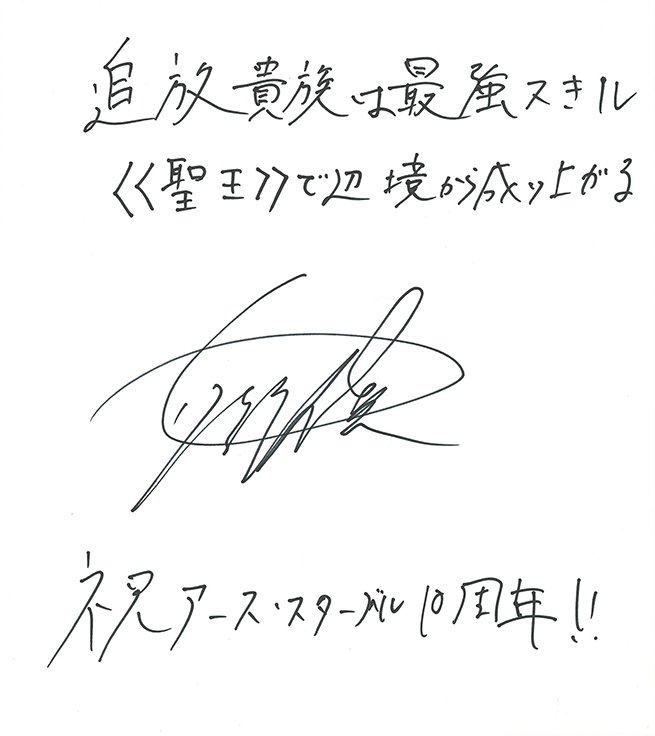 追放貴族は最強スキル
《聖王》で辺境から成り上がる
祝アース・スターノベル10周年!!